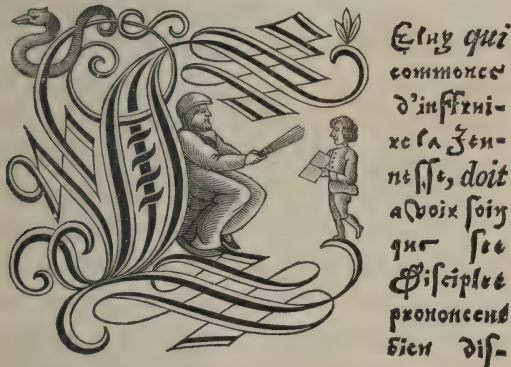 Celuy qui
commence
d'instrui-
re la Jeu-
nesse, doit
avoir soin
que ses
Disciples
prononcent
bien dis-